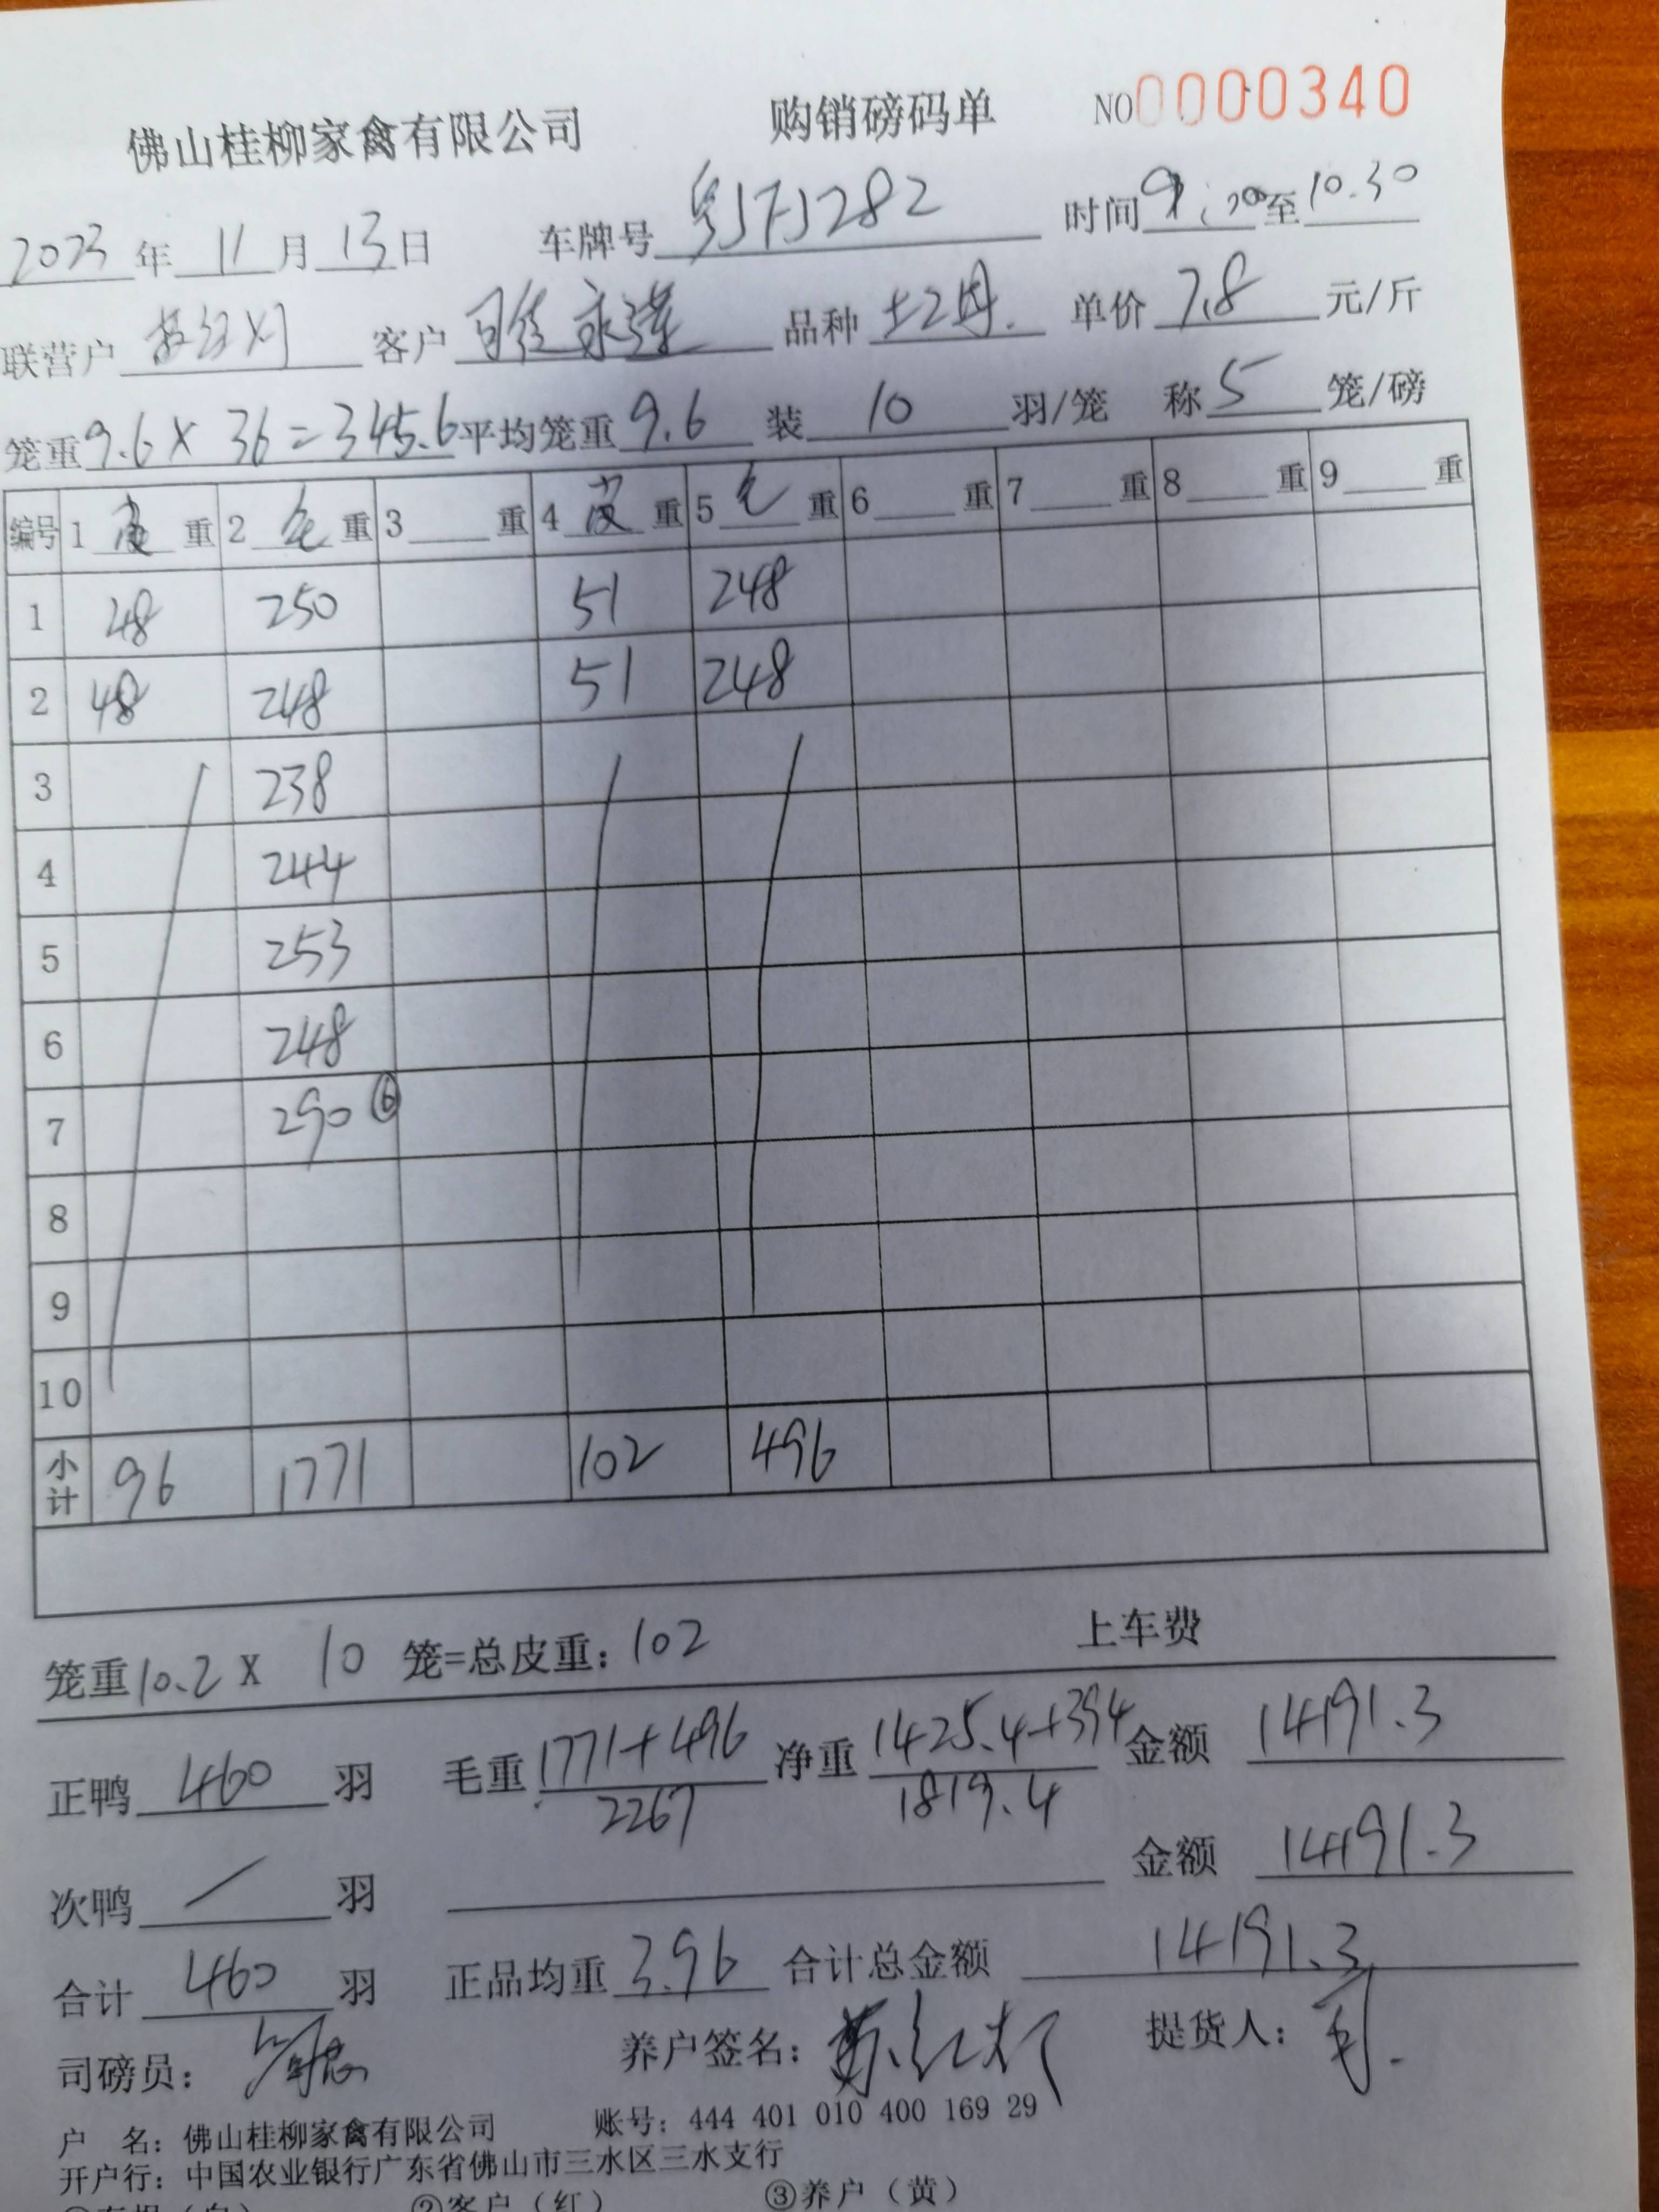 佛山桂柳家禽有限公司 购销磅码单 NO0000340
2023年11月13日 车牌号 时间 至10.30
联营户 客户 永 品种 单价7.8元/斤
笼重9.6×36=345.6平均笼重9.6 装10羽/笼 称5笼/磅
编号 1皮重 2毛重 3重 4皮重 5毛重 6重 7重 8重 9重
1 48 250 51 248
2 48 248 51 248
3 238
4 244
5 253
6 248
7 290 ⑥
8
9
10
小计 96 1771 102 496
笼重10.2× 10 笼=总皮重：102 上车费
正鸭460羽 毛重1771+496 净重1425.4+394 金额14191.3
2267 1819.4
次鸭/羽 金额14191.3
合计460羽 正品均重3.96 合计总金额14191.3
司磅员： 养户签名： 提货人：
户 名：佛山桂柳家禽有限公司 账号：444 401 010 400 169 29
开户行：中国农业银行广东省佛山市三水区三水支行
②客户（红） ③养户（黄）